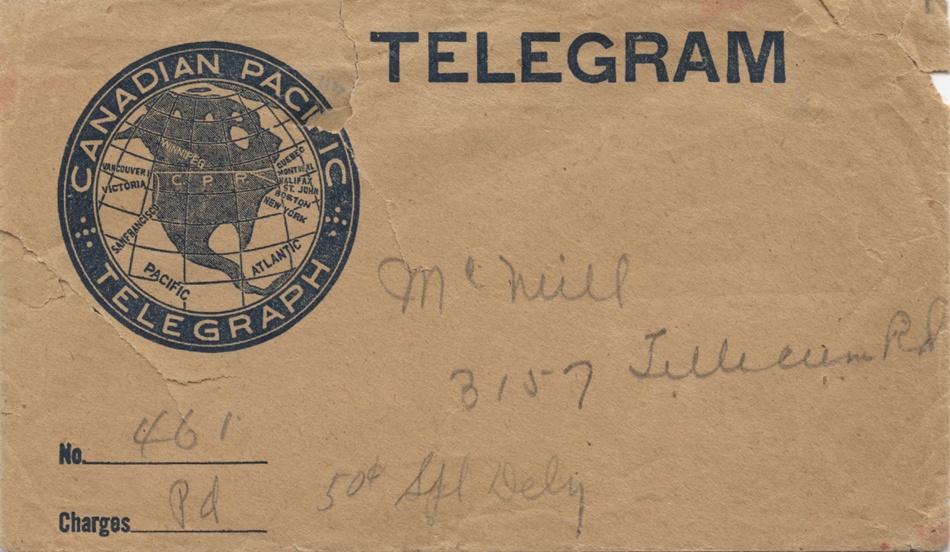 TELEGRAM
CANADIAN PACIFIC
TELEGRAPH
WINNIPEG
VANCOUVER
VICTORIA
C P R
QUEBEC
MONTREAL
HALIFAX
ST. JOHN
BOSTON
NEW YORK
SANFRANCISCO
PACIFIC
ATLANTIC
Mc Neill
3157 Tillicum Rd
No. 461
50¢ Spl Dely
Charges Pd